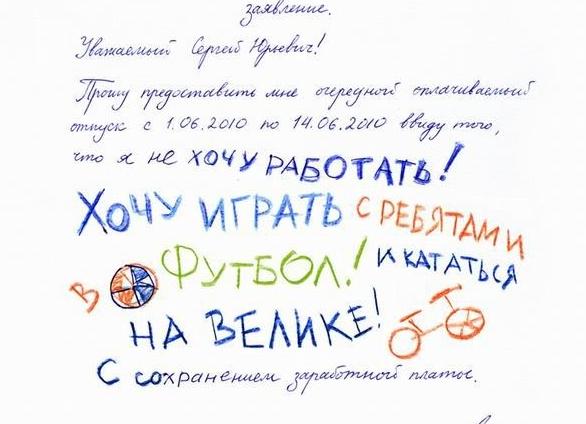 заявление.
Уважаемый Сергей Юрьевич!
Прошу предоставить мне очередной оплачиваемый
отпуск с 1.06.2010 по 14.06.2010 ввиду того,
что я не ХОЧУ РАБОТАТЬ!
ХОЧУ ИГРАТЬ С РЕБЯТАМИ
В ФУТБОЛ! И КАТАТЬСЯ
НА ВЕЛИКЕ!
С сохранением заработной платы.